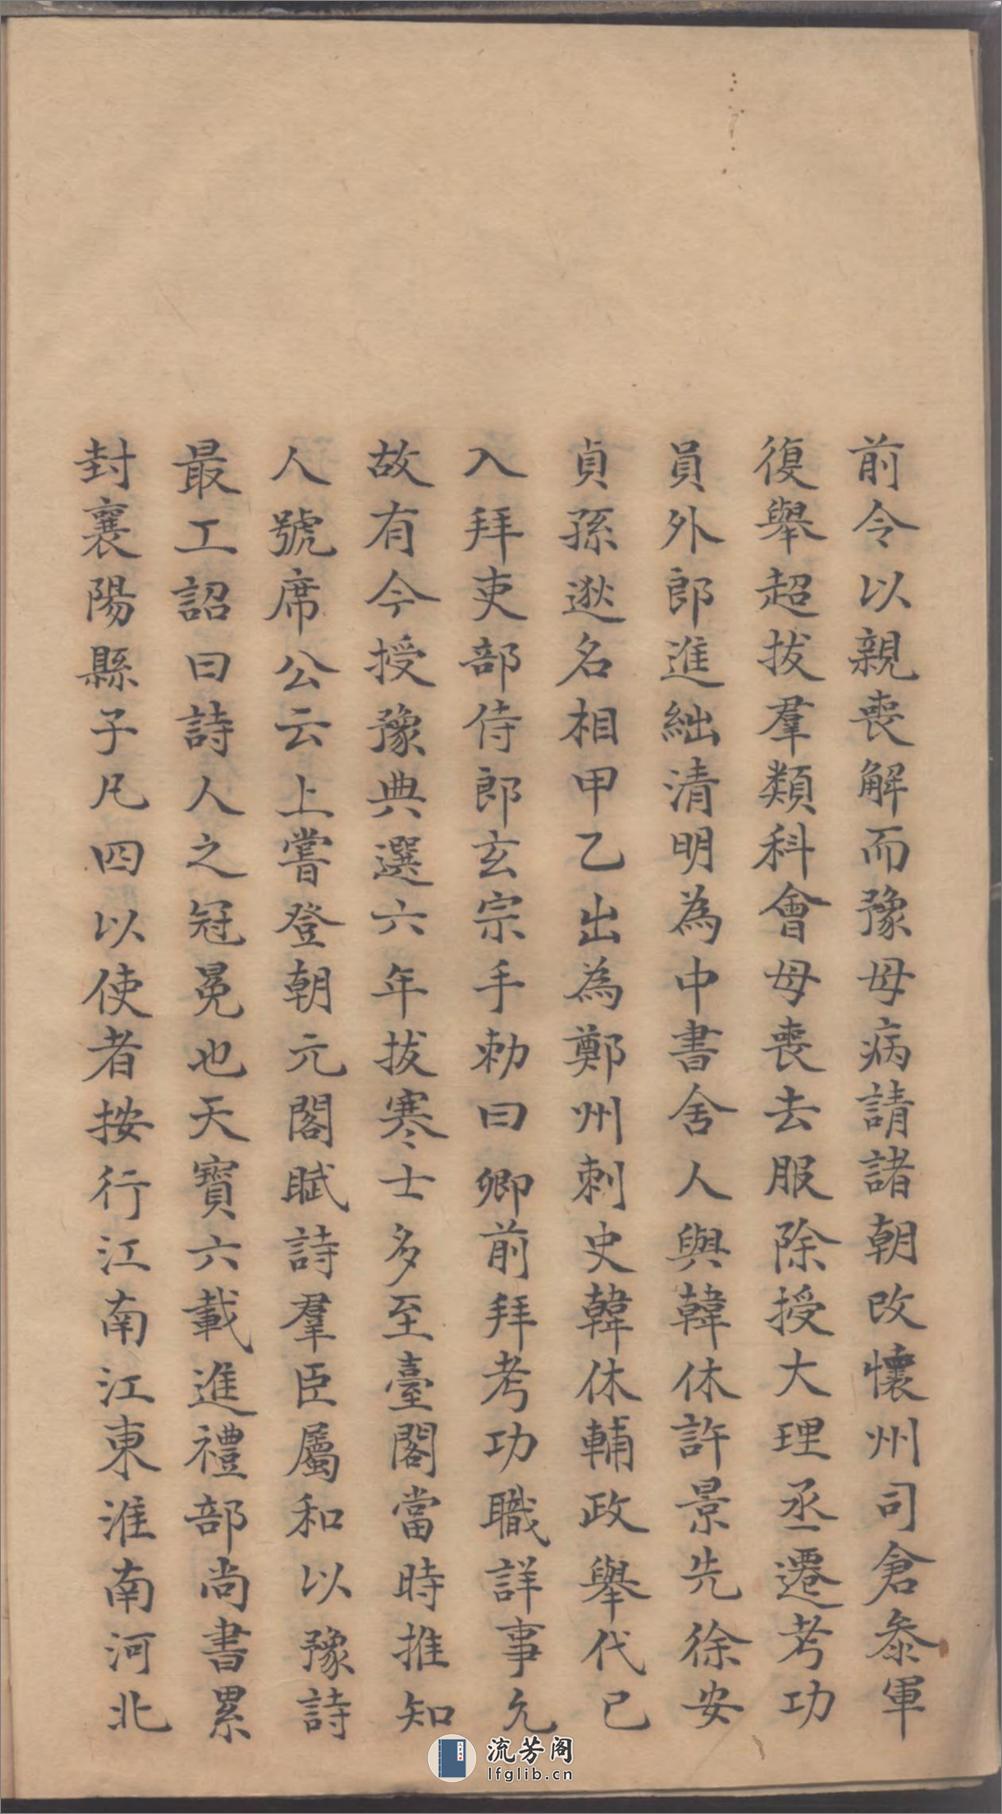 前令以親喪解而豫母病請諸朝改懷州司倉叅軍
復舉超拔羣類科會母喪去服除授大理丞遷考功
員外郎進絀清明為中書舍人與韓休許景先徐安
貞孫逖名相甲乙出為鄭州刺史韓休輔政舉代已
入拜吏部侍郎玄宗手勅曰卿前拜考功職詳事允
故有今授豫典選六年拔寒士多至臺閣當時推知
人號席公云上嘗登朝元閣賦詩羣臣屬和以豫詩
最工詔曰詩人之冠冕也天寶六載進禮部尚書累
封襄陽縣子凡四以使者按行江南江東淮南河北
流芳阁
lfglib.cn